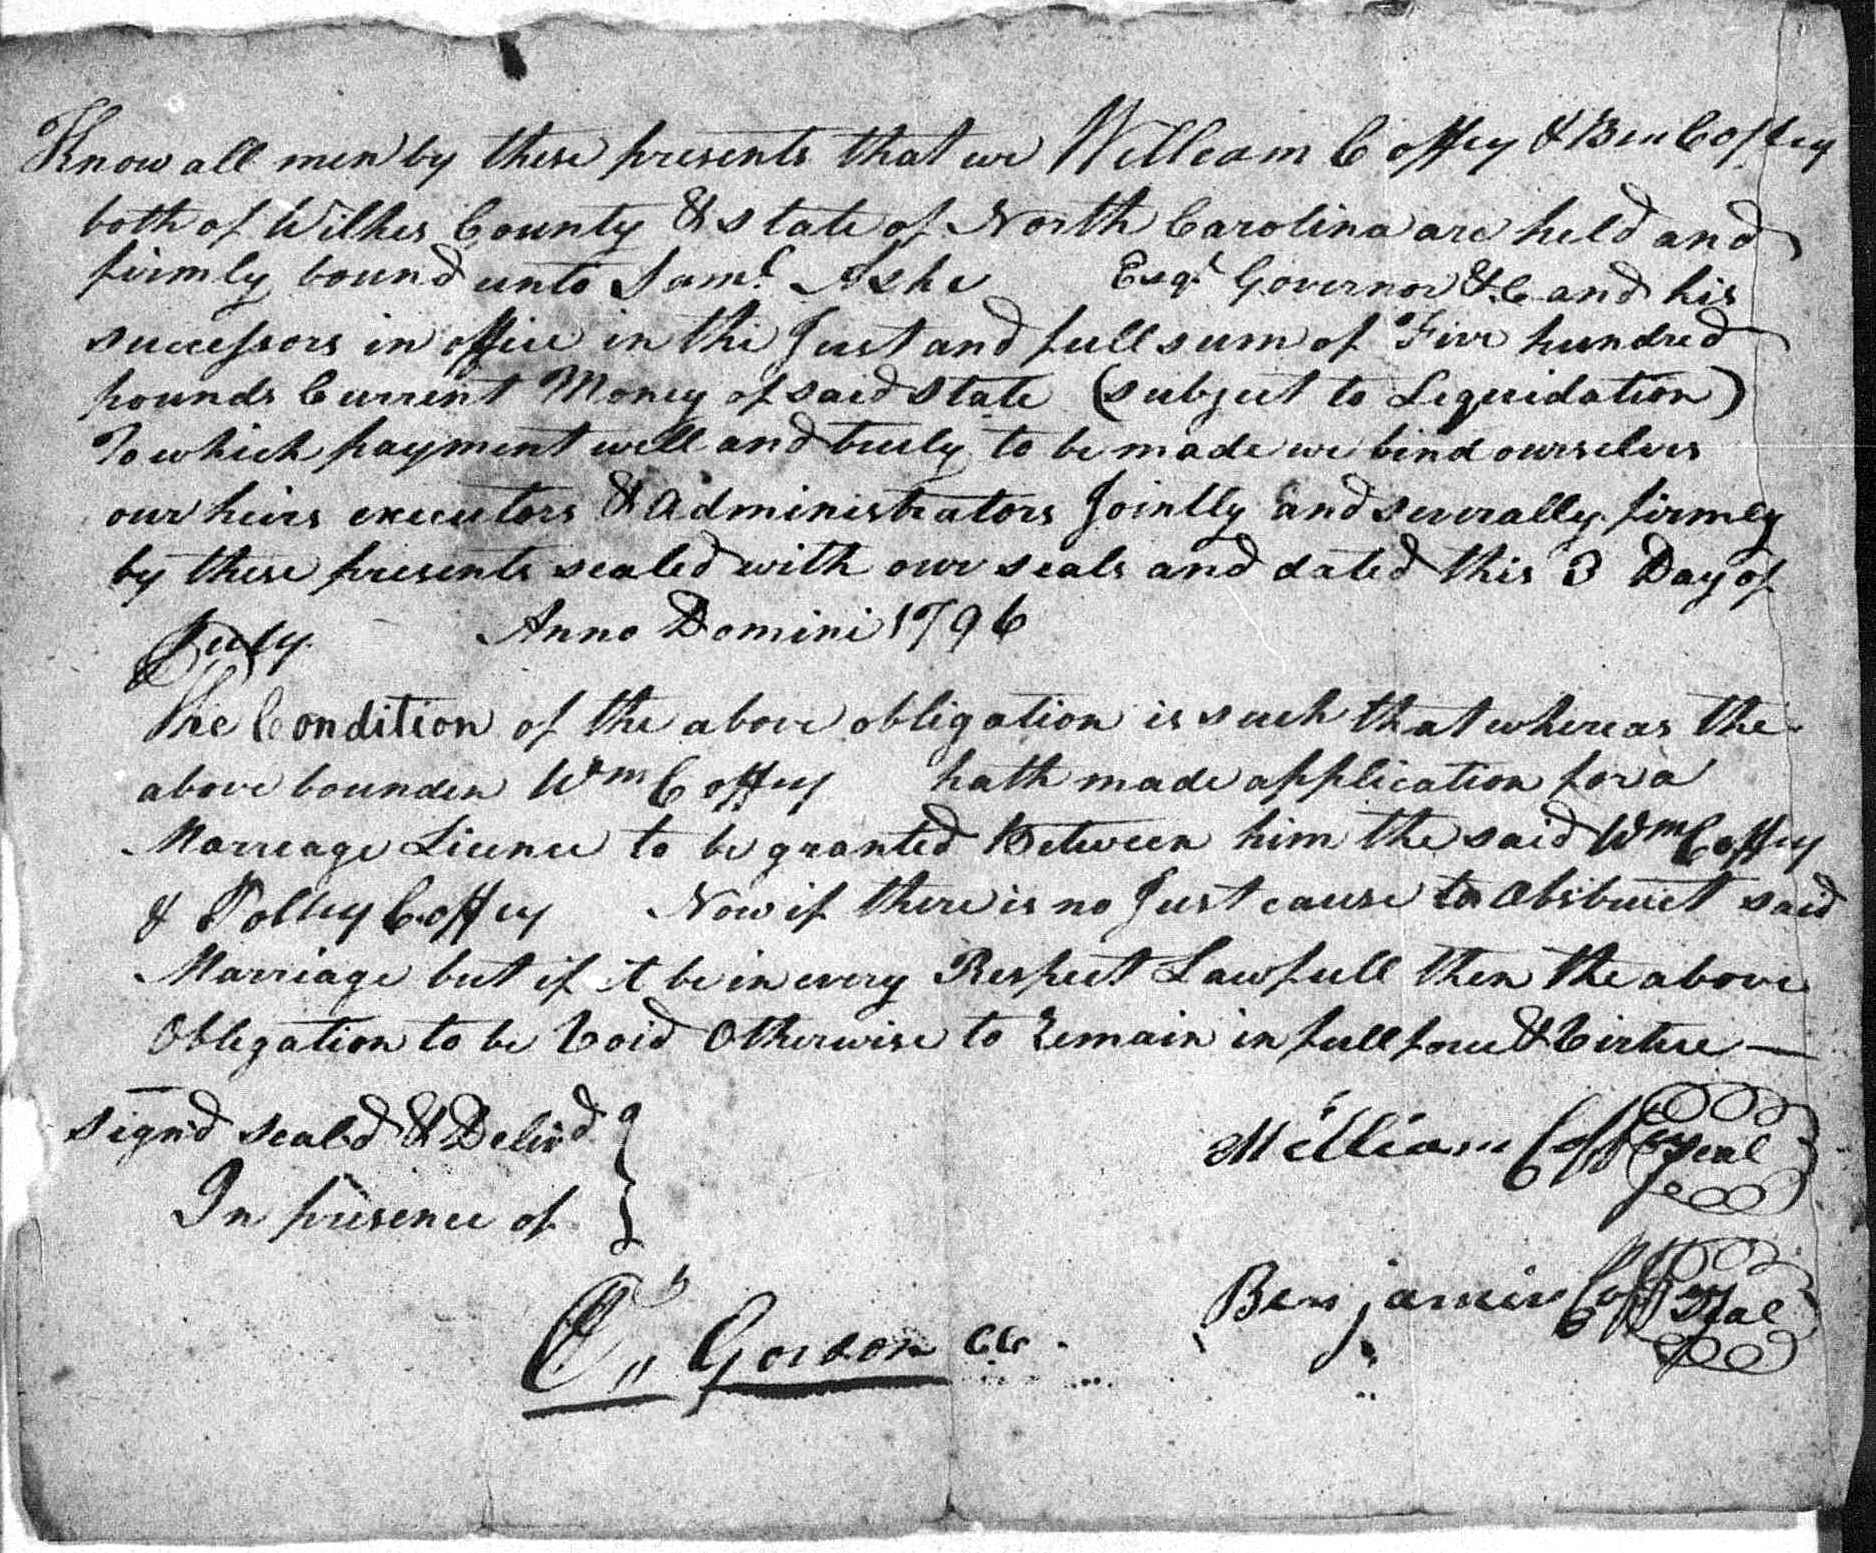 Know all men by these presents that we William Coffey & Ben Coffey
both of Wilkes County & state of North Carolina are held and
firmly bound unto Saml. Ashe Esqr. Governor &.C and his
successors in office in the Just and full sum of Five hundred
pounds Current Money of said state (subject to Liquidation)
To which payment well and truly to be made we bind ourselves
our heirs executors & administrators Jointly and severally firmly
by these presents sealed with our seals and dated this 3 Day of
July Anno Domini 1796
The Condition of the above obligation is such that whereas the
above bounden Wm Coffey hath made application for a
Marreage Licence to be granted Between him the said Wm Coffey
& Polley Coffey Now if there is no Just cause to Obstruct said
Marriage but if it be in every Respect Lawfull then the above
Obligation to be Void Otherwise to Remain in full force & Virtue —
Signd seald & Delivd
In presence of
William Coffey Seal
Benjamin Coffey Seal
Gordon CC